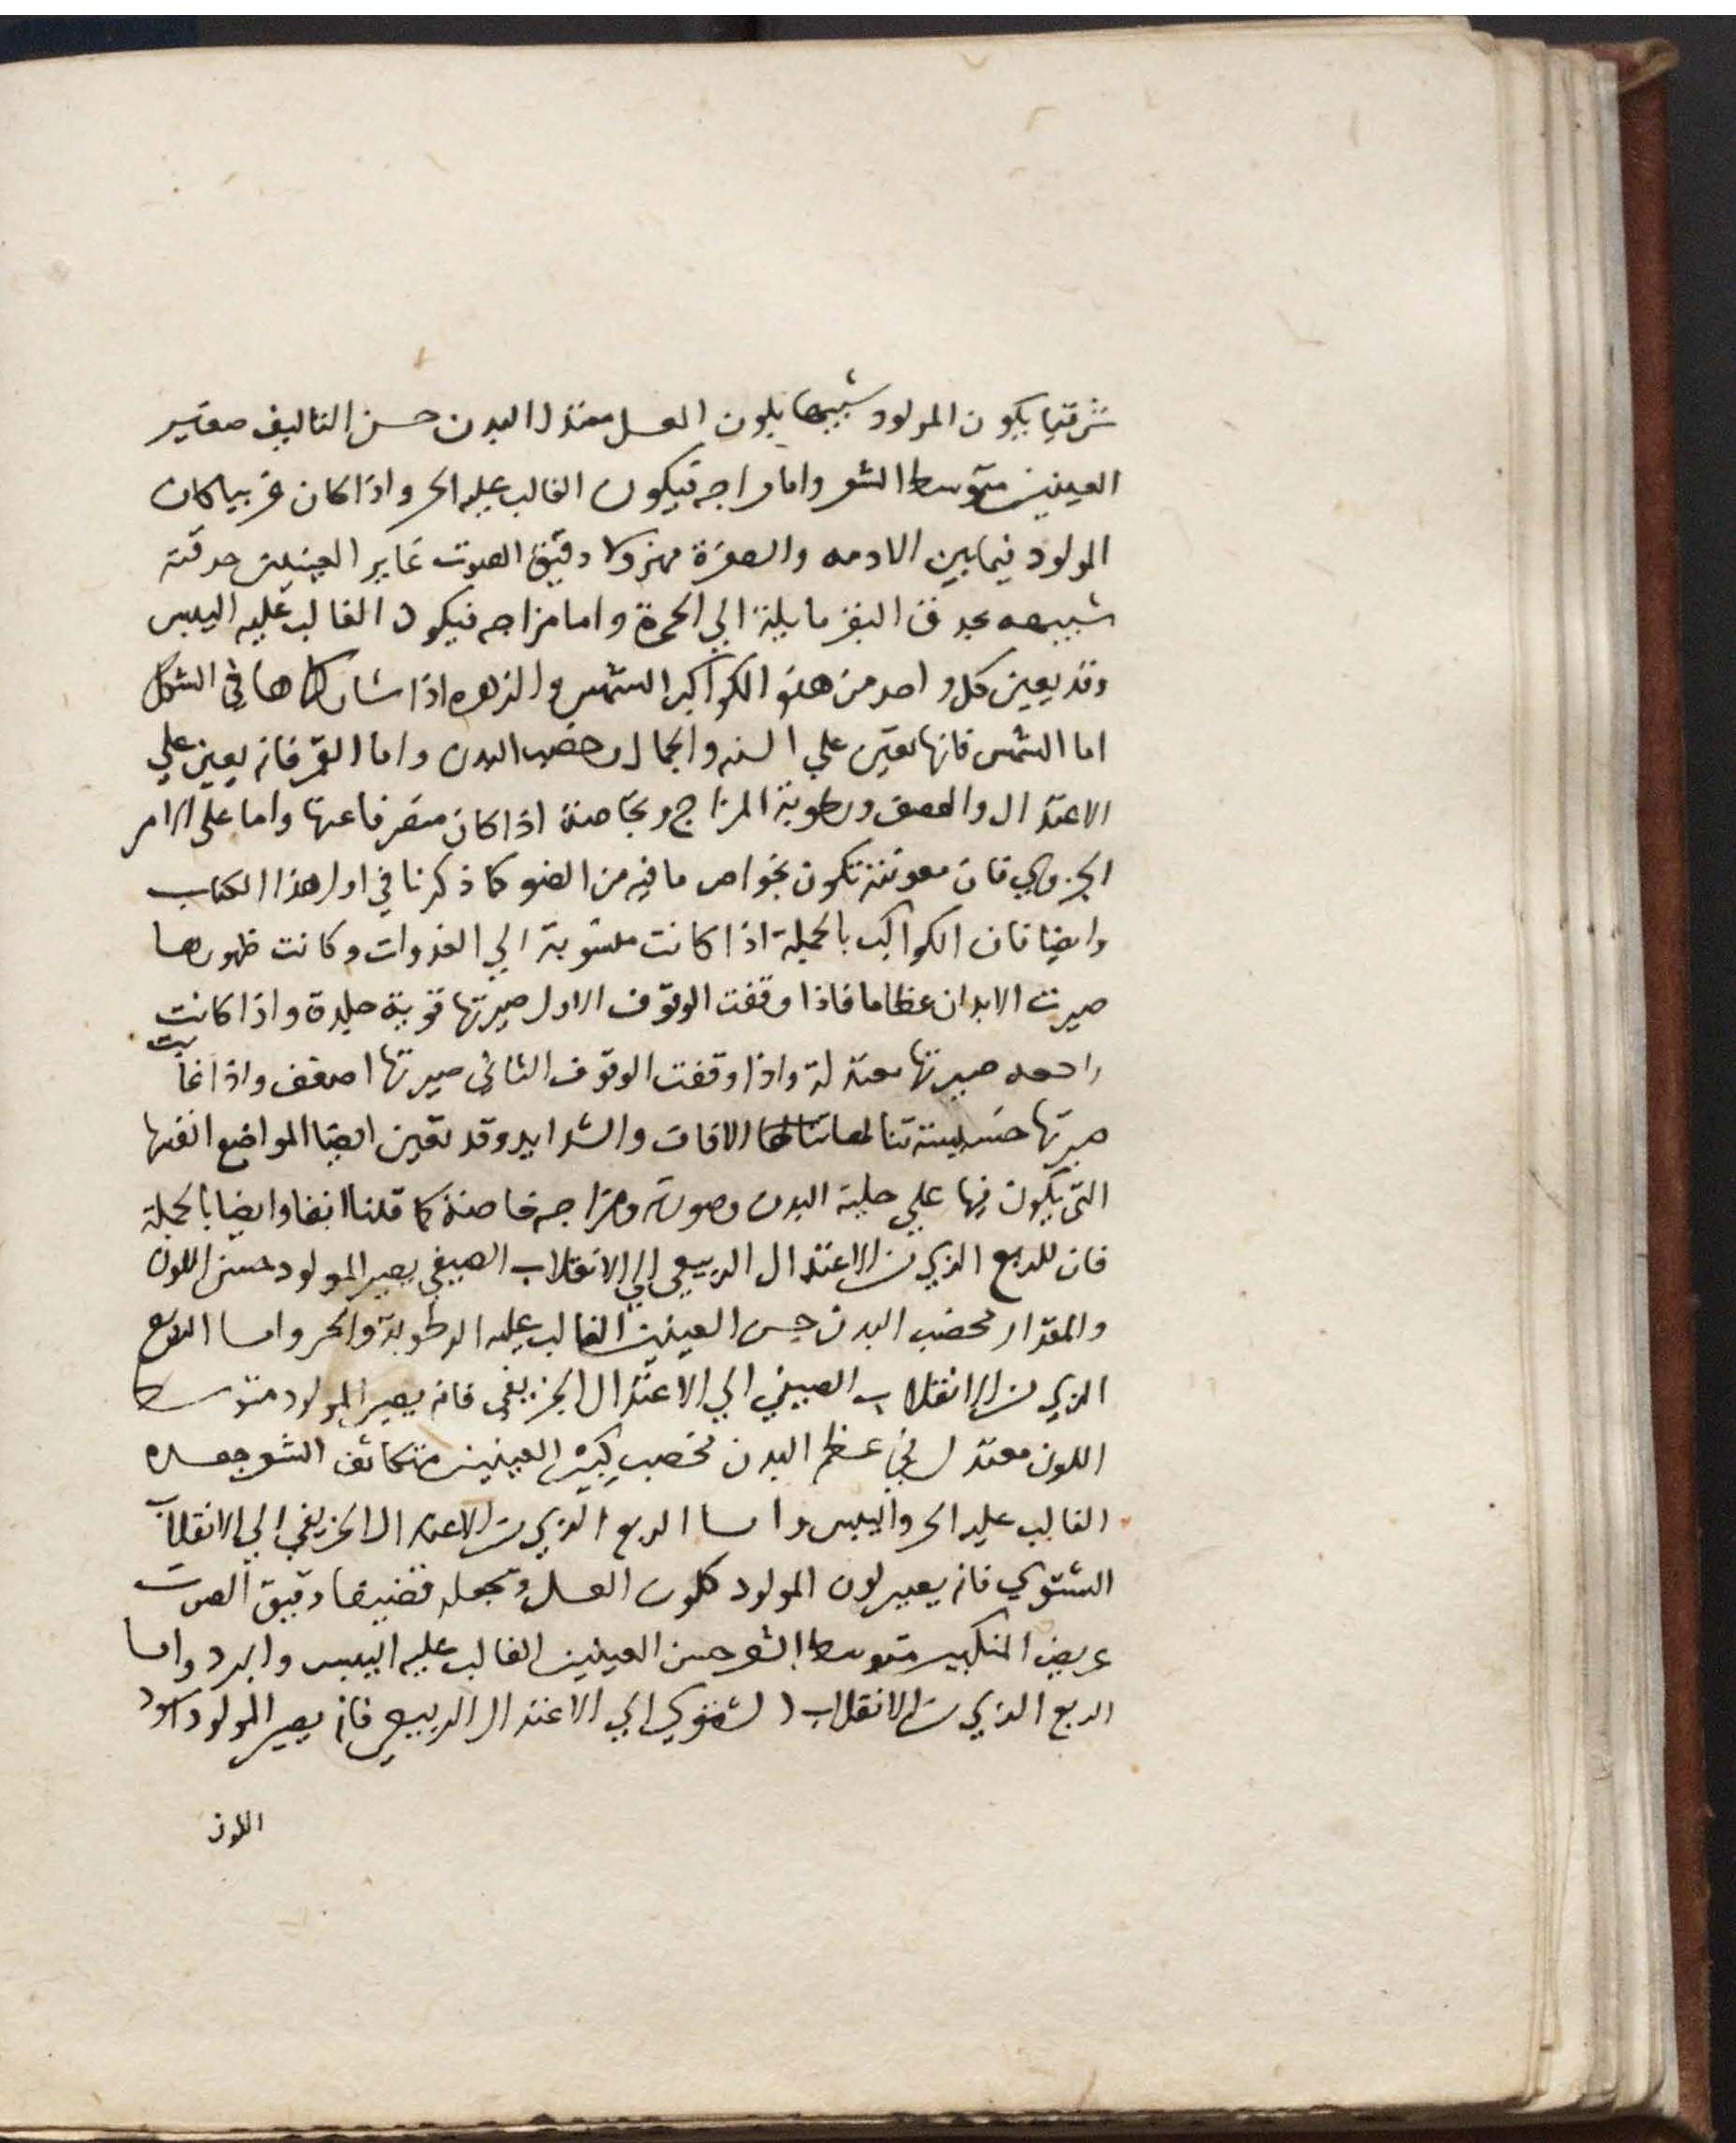 شرقيا يكون المولود شبيها بلون العسل معتدل البدن حسن التاليف صغير
العينين متوسط الشعر واما مزاجه فيكون الغالب عليه الحر واذا كان غربيا كان
المولود فيما بين الادمه والصفرة مهزولا دقيق الصوت غاير العينين حدقته
شبيهه بحدق البقر مايلة الي الحمرة واما مزاجه فيكون الغالب عليه اليبس
وقد يعين كل واحد من هذه الكواكب الشمس والزهره اذا شاركاها في الشكل
اما الشمس فانها تعين علي السنه والجمال وخصب البدن واما القمر فانه يعين علي
الاعتدال والضعف ورطوبة المزاج وبخاصة اذا كان منصرفا عنها واما علي الامر
الجزوي فان معونته تكون بخواص ما فيه من الضو كما ذكرنا في اول هذا الكتاب
وايضا فان الكواكب بالجملة اذا كانت منسوبة الي الغدوات وكانت ظهورها
صيرت الابدان عظاما فاذا وقفت الوقوف الاول صيرتها قوية جلدة واذا كانت
راجعه صيرتها معتدلة واذا وقفت الوقوف الثاني صيرتها اضعف واذا غابت
صيرتها خسيسة تنالها الافات والشدايد وقد تعين ايضا المواضع انفسها
التي يكون فيها علي حلية البدن وصورته ومزاجه خاصة كما قلنا انفا وايضا بالجملة
فان للربع الذي من الاعتدال الربيعي الي الانقلاب الصيفي يصير المولود حسن اللون
والمقدار مخصب البدن حسن العينين الغالب عليه الرطوبة والحر واما الربع
الذي من الانقلاب الصيفي الي الاعتدال الخريفي فانه يصير المولود متوسط
اللون معتدل في عظم البدن مخصب كبير العينين متكاثف الشعر جعده
الغالب عليه الحر واليبس واما الربع الذي من الاعتدال الخريفي الي الانقلاب
الشتوي فانه يصير لون المولود كلون العسل وتجعله قضيفا دقيق الصوت
عريض المنكبين متوسط الشعر حسن العينين الغالب عليه اليبس والبرد واما
الربع الذي من الانقلاب الشتوي الي الاعتدال الربيعي فانه يصير المولود اسود
اللون